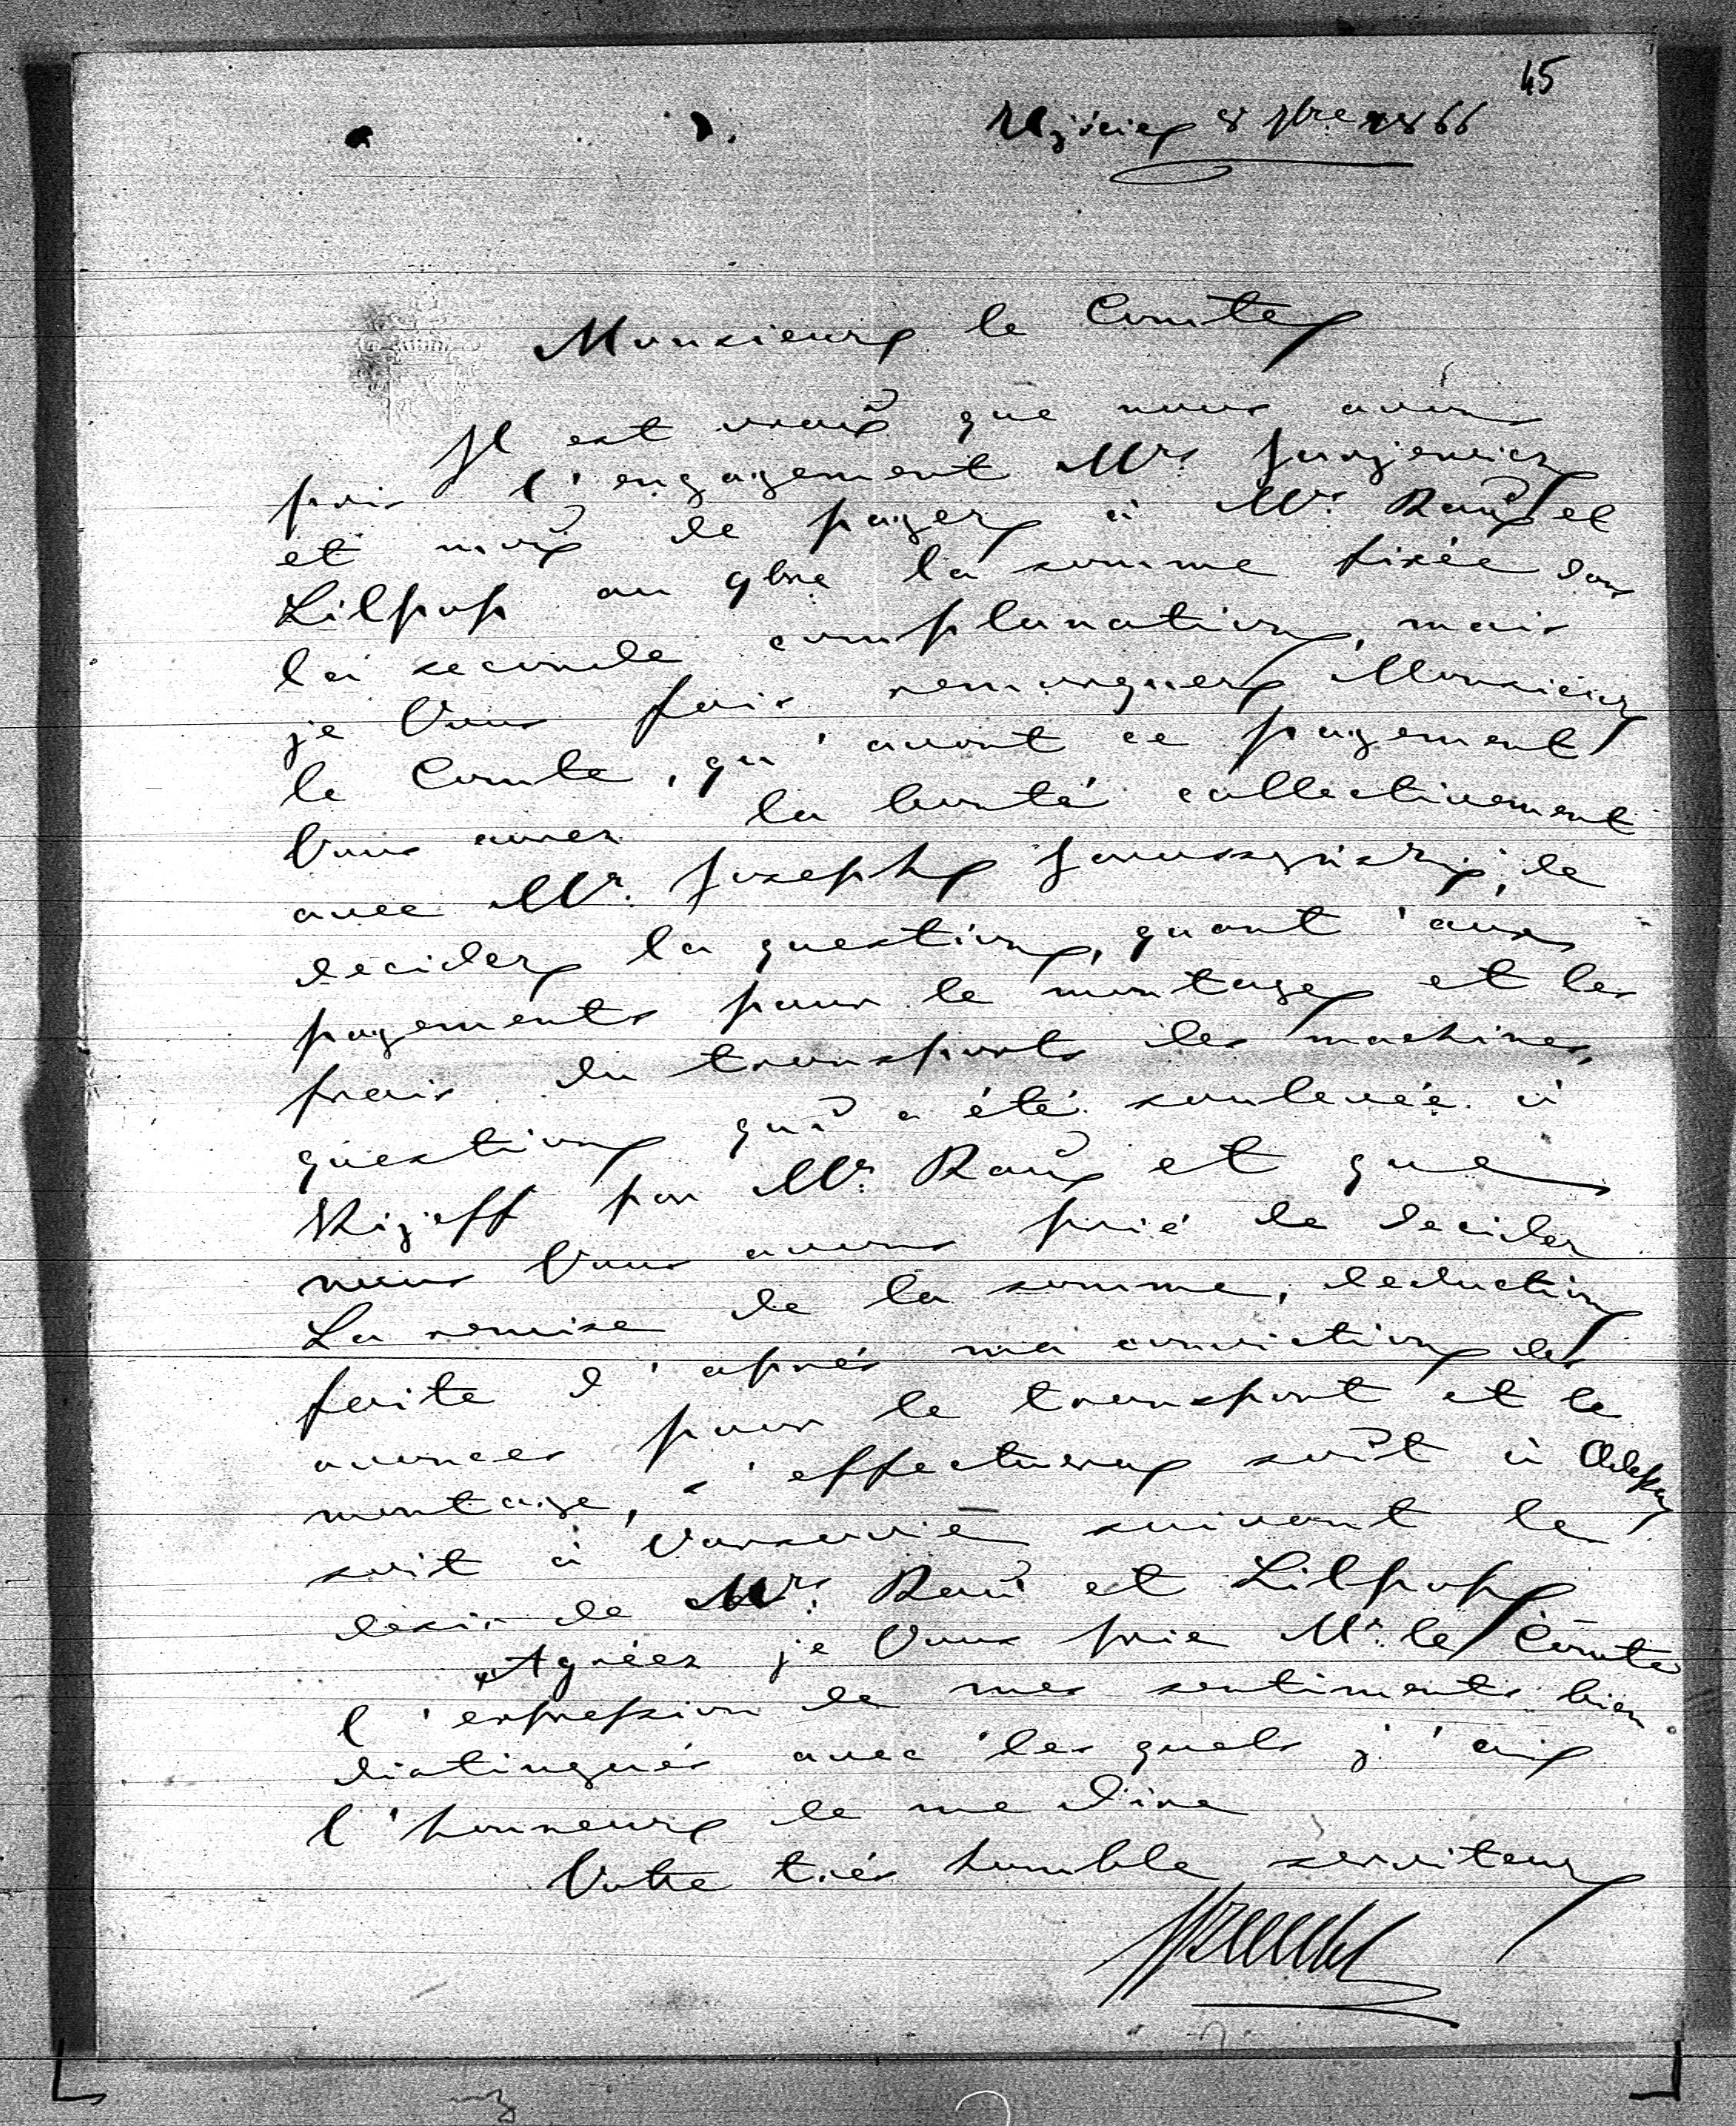 45
8 7bre 1866
Monsieur le Comte
Il est vrai que nous avons
pris l'engagement Mrs Jurjewicz
et moi de payer à Mrs Rau et
Lilpop au 9bre la somme fixée dans
la seconde complanation, mais
je Vous fais remarquer Monsieur
le Comte, qu'avant ce payement
Vous aurez la bonté collectivement
avec Mr. Joseph de
decider la question, quant aux
payements pour le montage et les
frais du transports des machines,
question qui a été soulevée à
Kijeff par Mr. Rau et que
nous Vous avons prié de decider
La remise de la somme, deduction
faite d'aprés ma conviction des
avances pour le transport et le
montage, s'effectuera soit à Odessa
soit à Varsovie suivant le
desir de Mrs. Rau et Lilpop
Agréez je Vous prie Mr. le Comte
l'expression de mes sentiments bien
distingués avec les quels j'ai
l'honneur de me dire
Votre trés humble serviteur